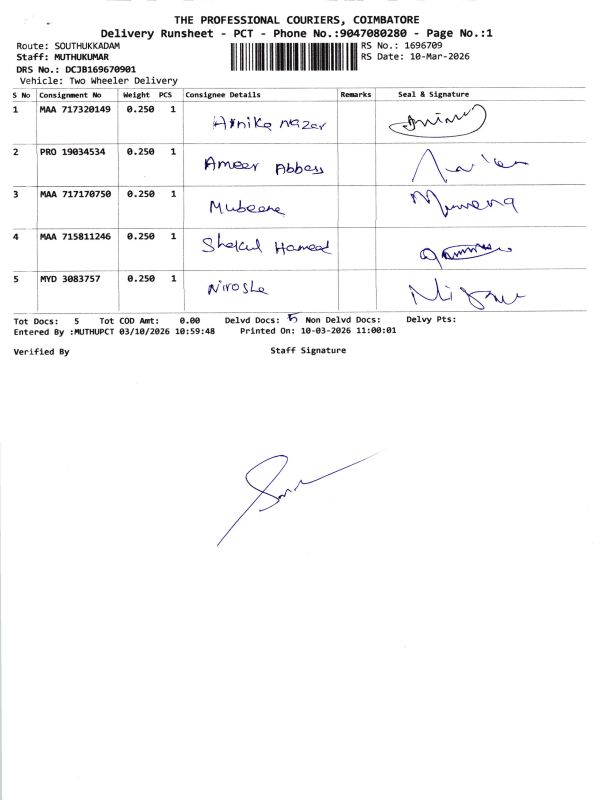 THE PROFESSIONAL COURIERS, COIMBATORE
Delivery Runsheet - PCT - Phone No.:9047080280 - Page No.:1
Route: SOUTHUKKADAM RS No.: 1696709
Staff: MUTHUKUMAR RS Date: 10-Mar-2026
DRS No.: DCJB169670901
Vehicle: Two Wheeler Delivery
S No Consignment No Weight PCS Consignee Details Remarks Seal & Signature
1 MAA 717320149 0.250 1 Nazar
2 PRO 19034534 0.250 1 Ameer Abbas
3 MAA 717170750 0.250 1 Mubeena
4 MAA 715811246 0.250 1 Hameed
5 MYD 3083757 0.250 1 Nirosha
Tot Docs: 5 Tot COD Amt: 0.00 Delvd Docs: 5 Non Delvd Docs: Delvy Pts:
Entered By :MUTHUPCT 03/10/2026 10:59:48 Printed On: 10-03-2026 11:00:01
Verified By Staff Signature